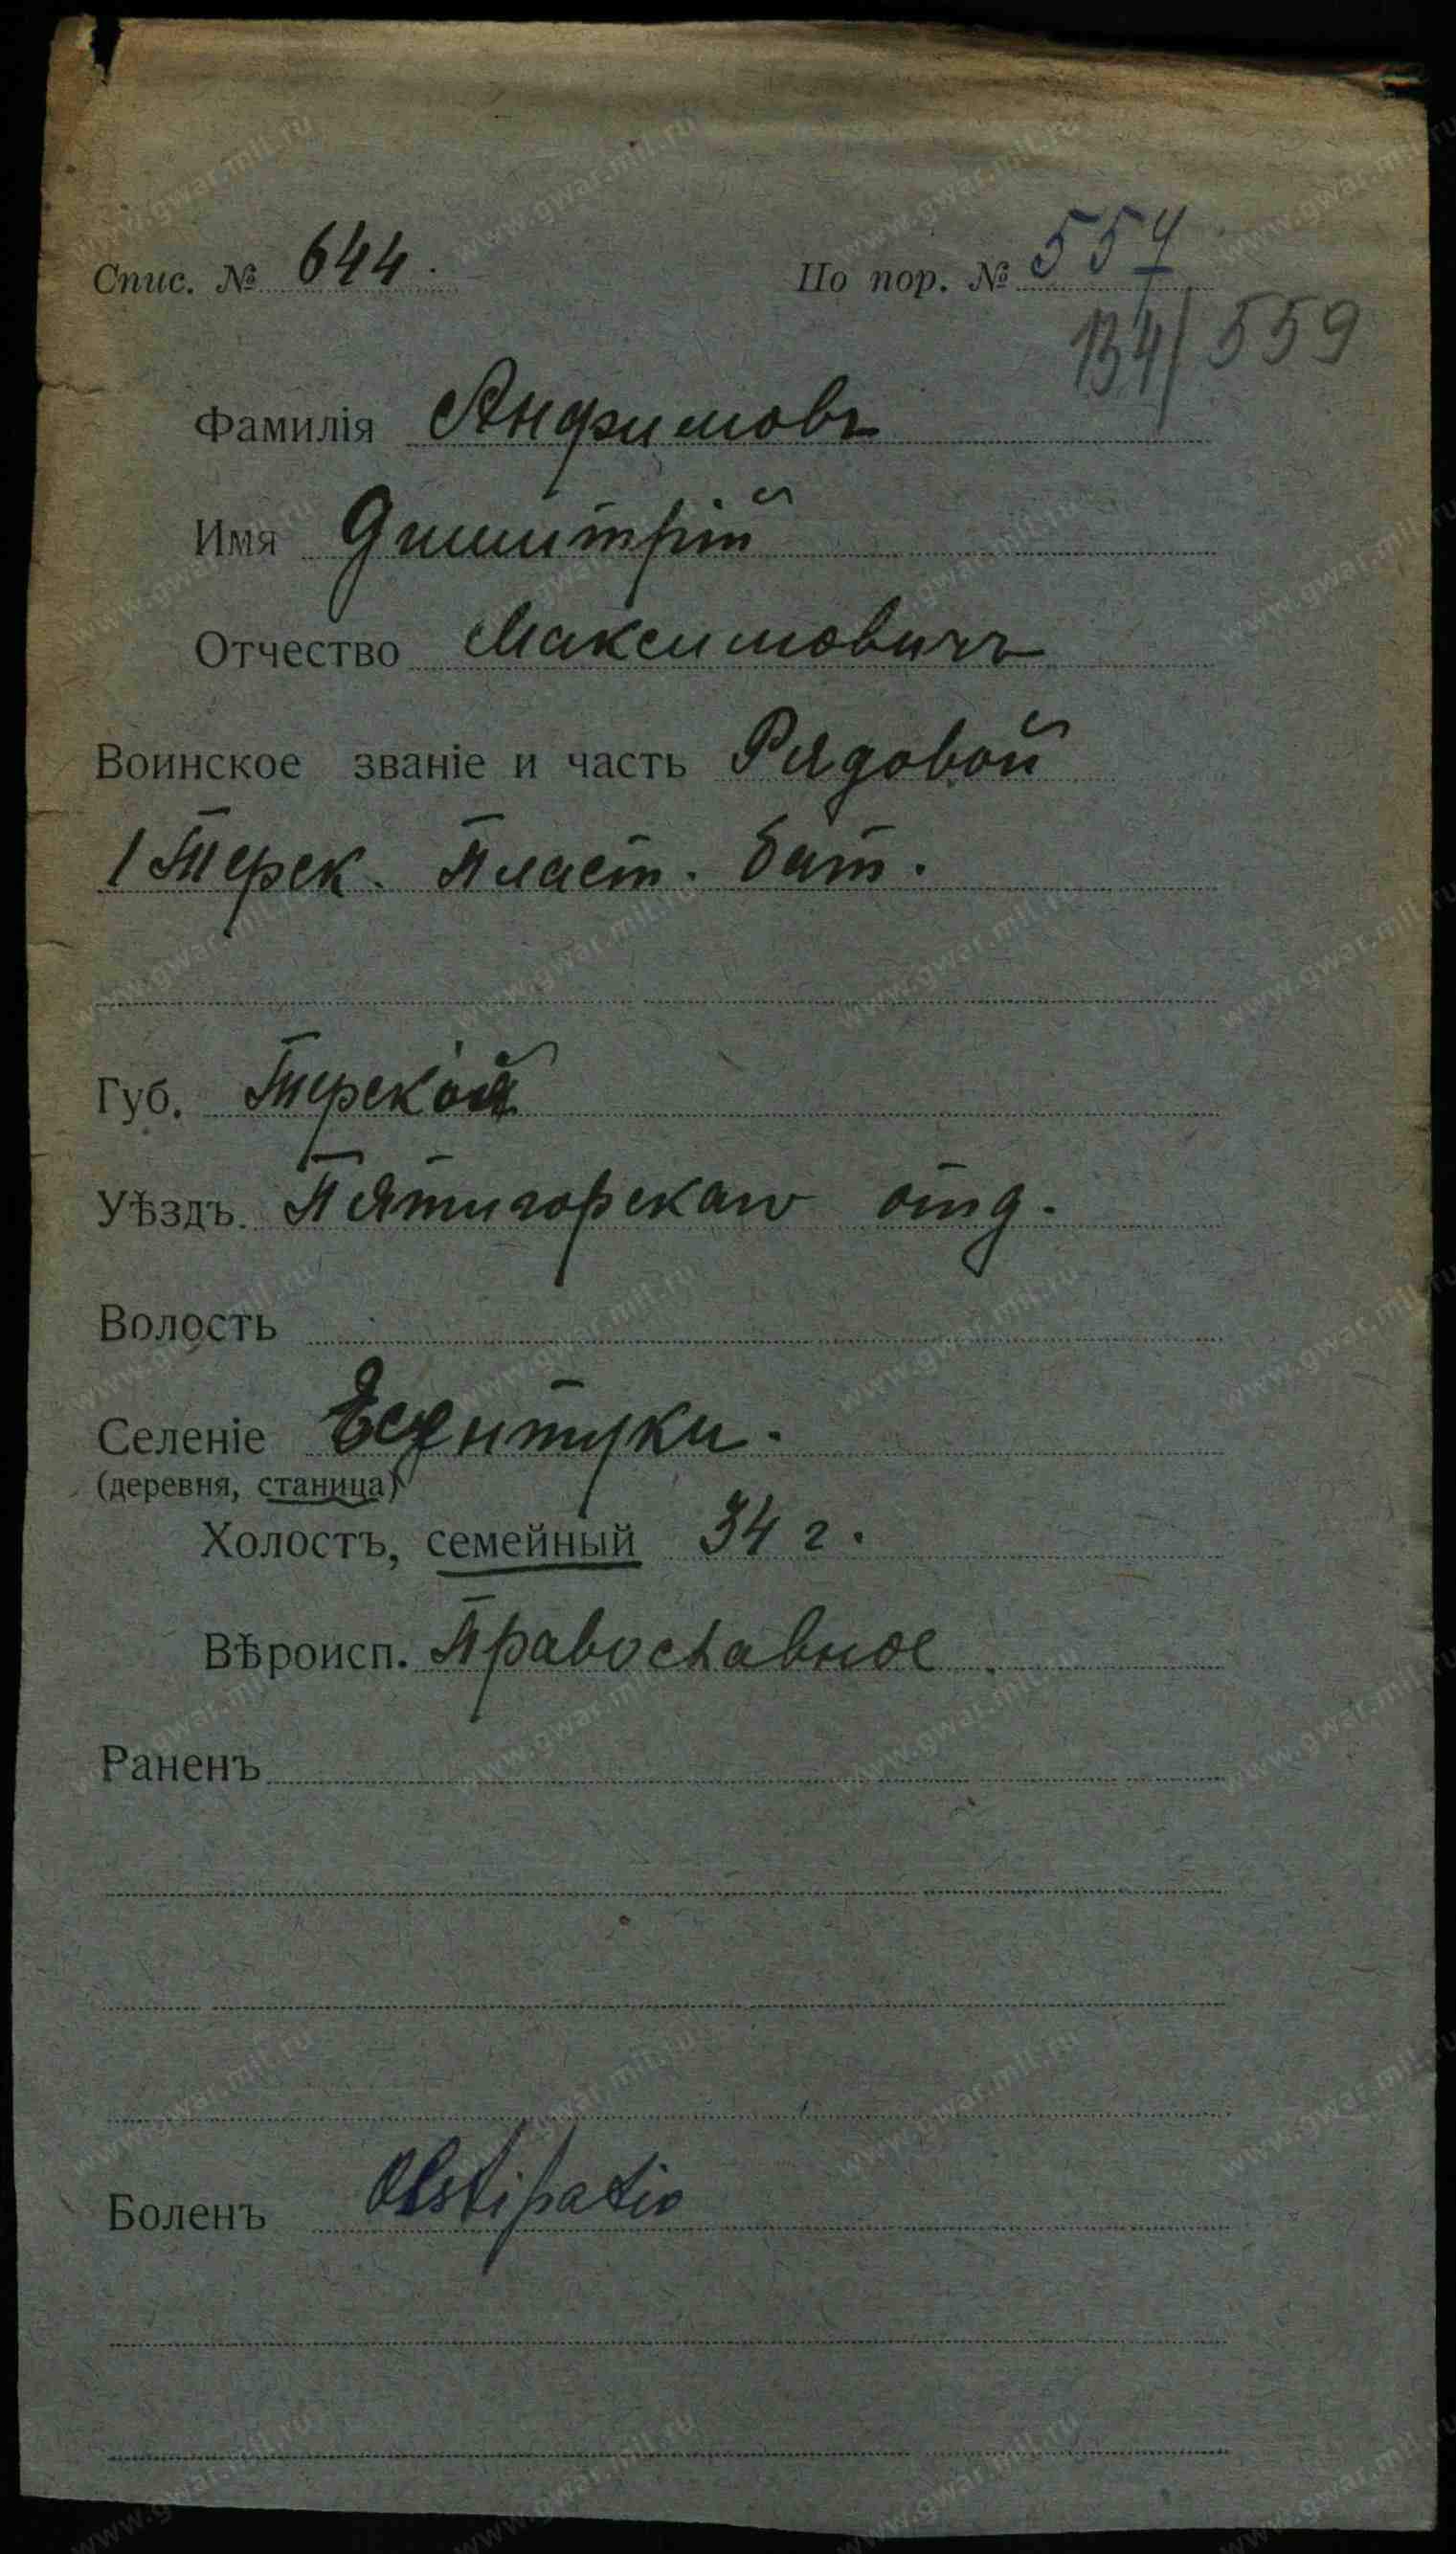 Спис. № 644. По пор. № 557
134/559
Фамилія Анфимовъ
Имя Дмитрій
Отчество Максимовичъ
Воинское званіе и часть Рядовой
1 Терек. Пласт. бат.
Губ. Терской
Уѣздъ. Пятигорскаго отд.
Волость
Селеніе Есентуки.
(деревня, станица)
Холостъ, семейный 34 г.
Вѣроисп. Православное
Раненъ
Боленъ Obstipatio